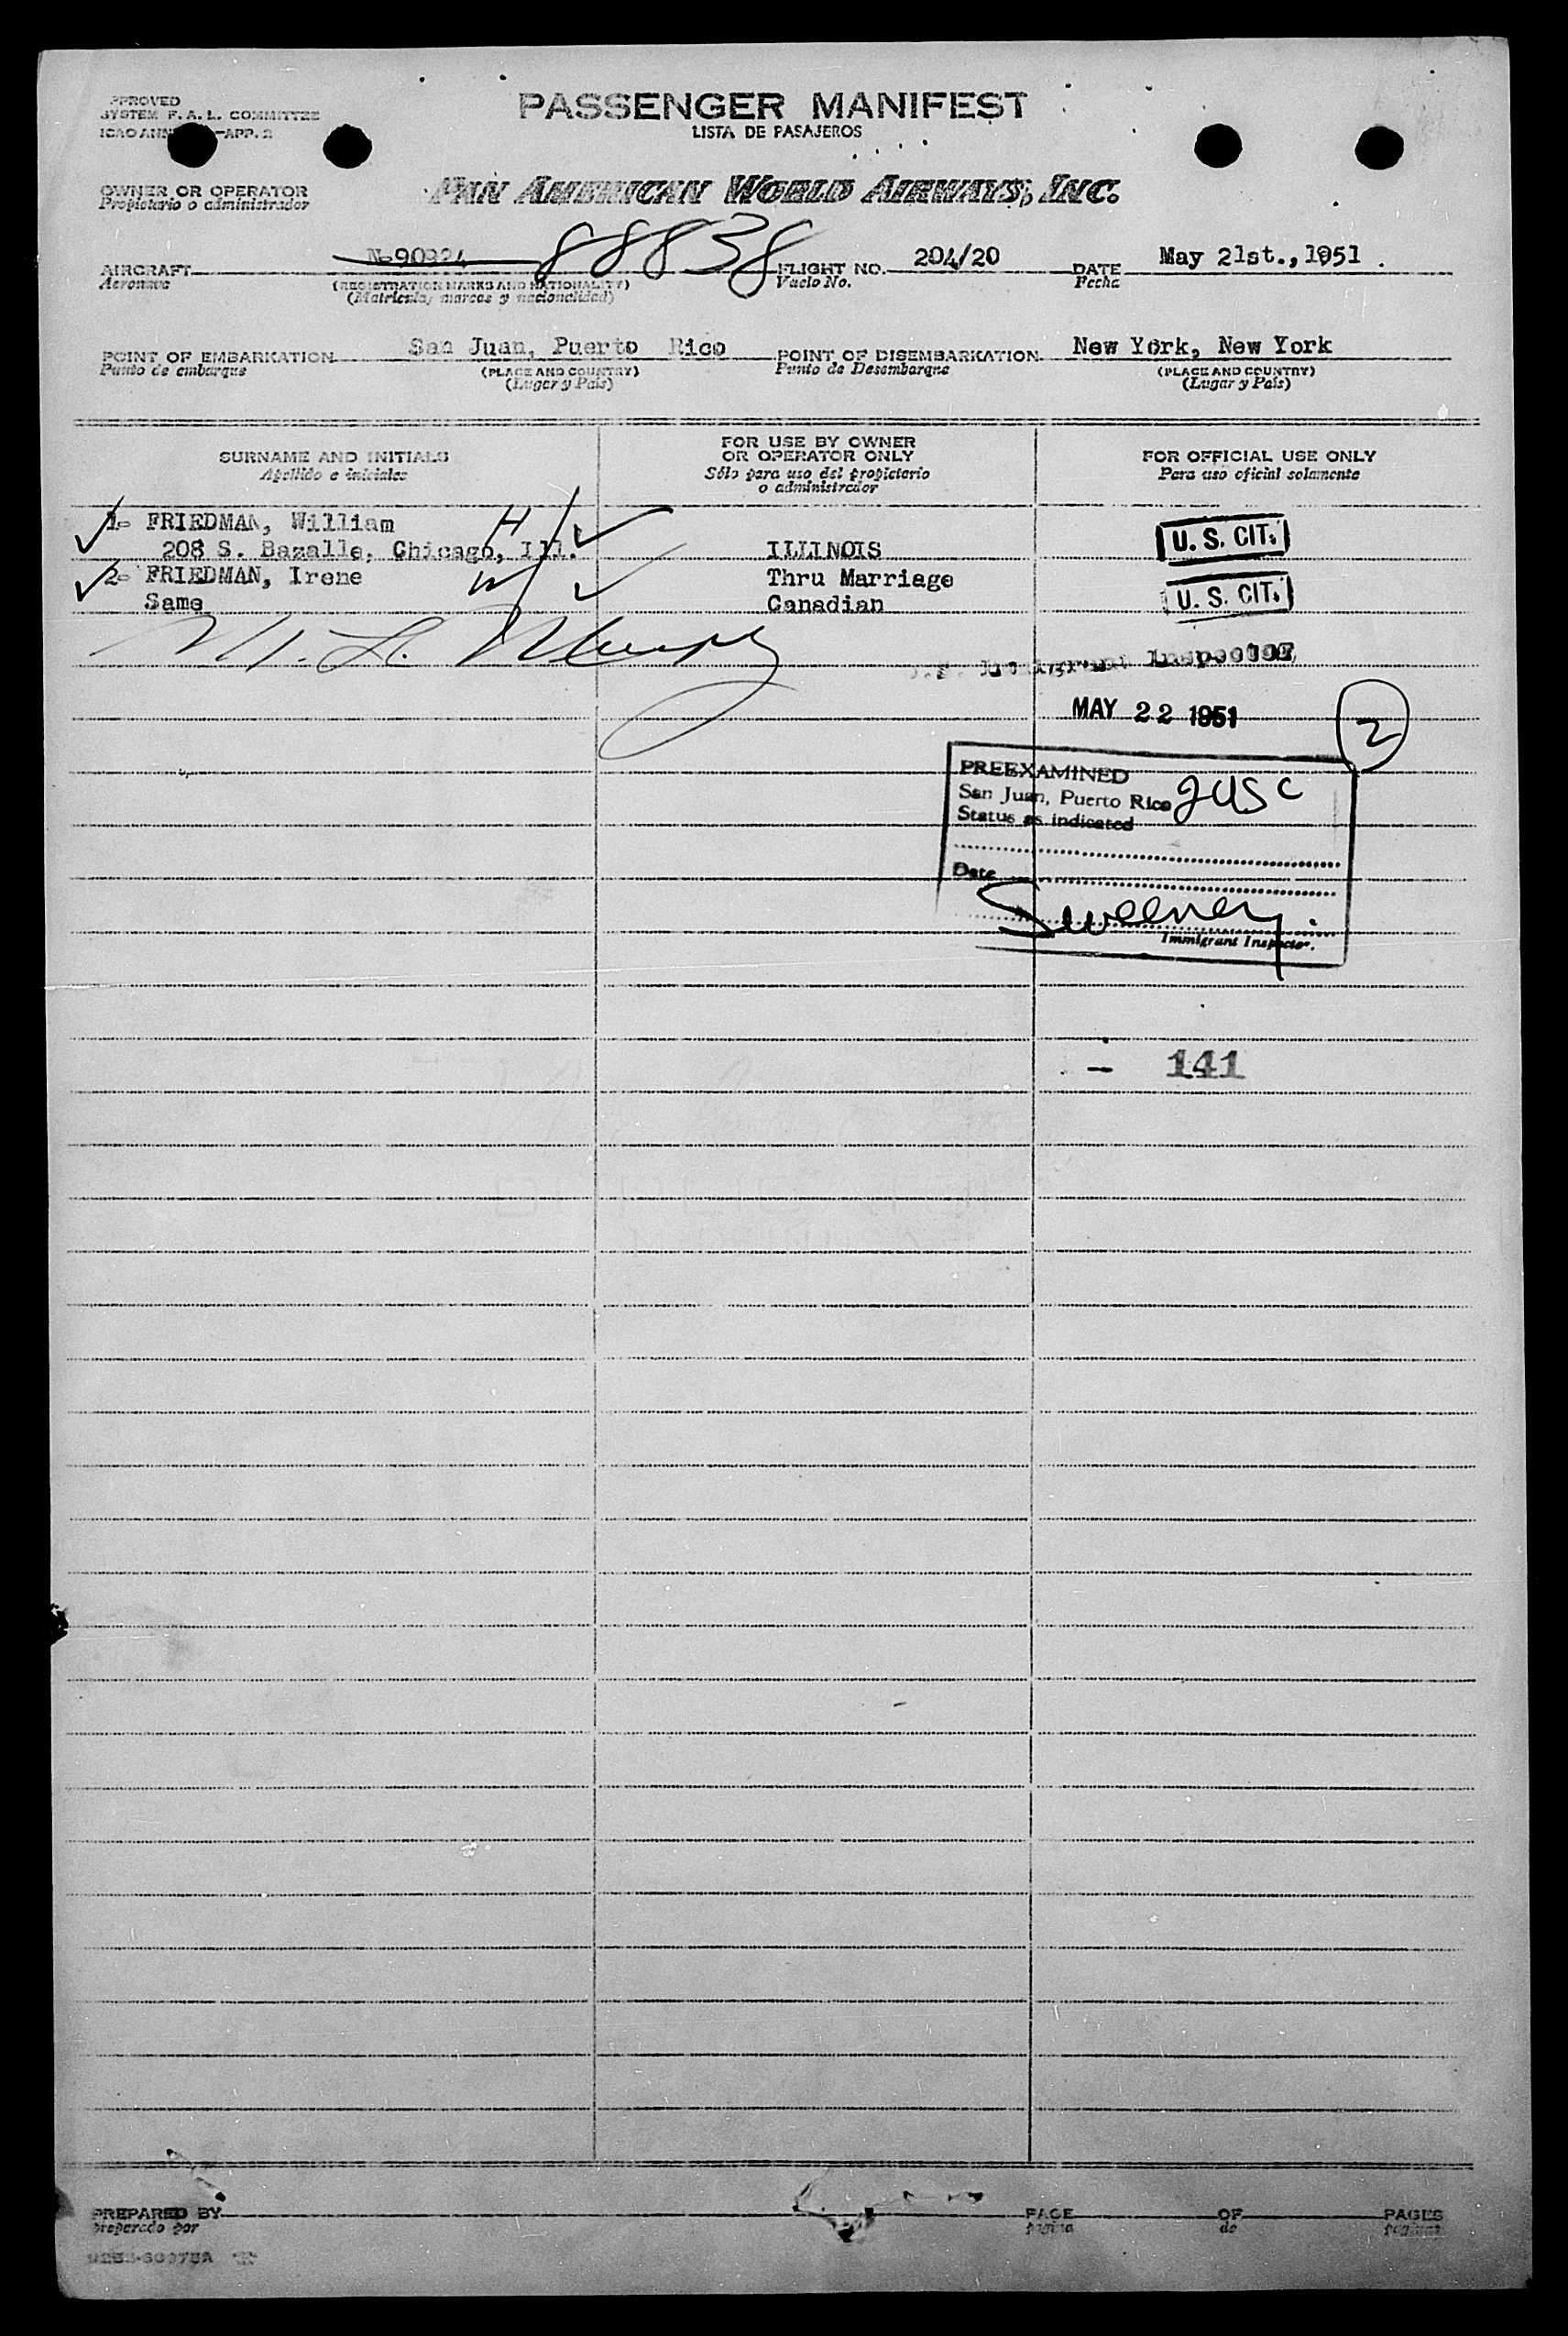 PPROVED
SYSTEM F. A. L. COMMITTEE
ICAO ANN -APP. 2
PASSENGER MANIFEST
LISTA DE PASAJEROS
OWNER OR OPERATOR
Propietario o administrador
PAN AMERICAN WORLD AIRWAYS, INC.
AIRCRAFT 88838 FLIGHT NO. 204/20 DATE May 21st.,1951 .
Aeronave (REGISTRATION MARKS AND NATIONALITY) Vuelo No. Fecha
(Matricula, marcas y nacionalidad)
POINT OF EMBARKATION San Juan, Puerto Rico POINT OF DISEMBARKATION New York, New York
Punto de embarque (PLACE AND COUNTRY) Punto de Desembarque (PLACE AND COUNTRY)
(Lugar y País) (Lugar y País)
SURNAME AND INITIALS
Apellido e iniciales
FOR USE BY OWNER
OR OPERATOR ONLY
Sólo para uso del propietario
o administrador
FOR OFFICIAL USE ONLY
Para uso oficial solamente
1- FRIEDMAN, William H U. S. CIT.
208 S. Bazalle, Chicago, Ill. ILLINOIS
2- FRIEDMAN, Irene W Thru Marriage U. S. CIT.
Same Canadian
Immigrant Inspector
MAY 22 1951
2
PREEXAMINED
San Juan, Puerto Rico 2USC
Status as indicated
Date
Sweeney.
Immigrant Inspector.
- 141
PREPARED BY PAGE OF PAGES
Preparado por página de páginas